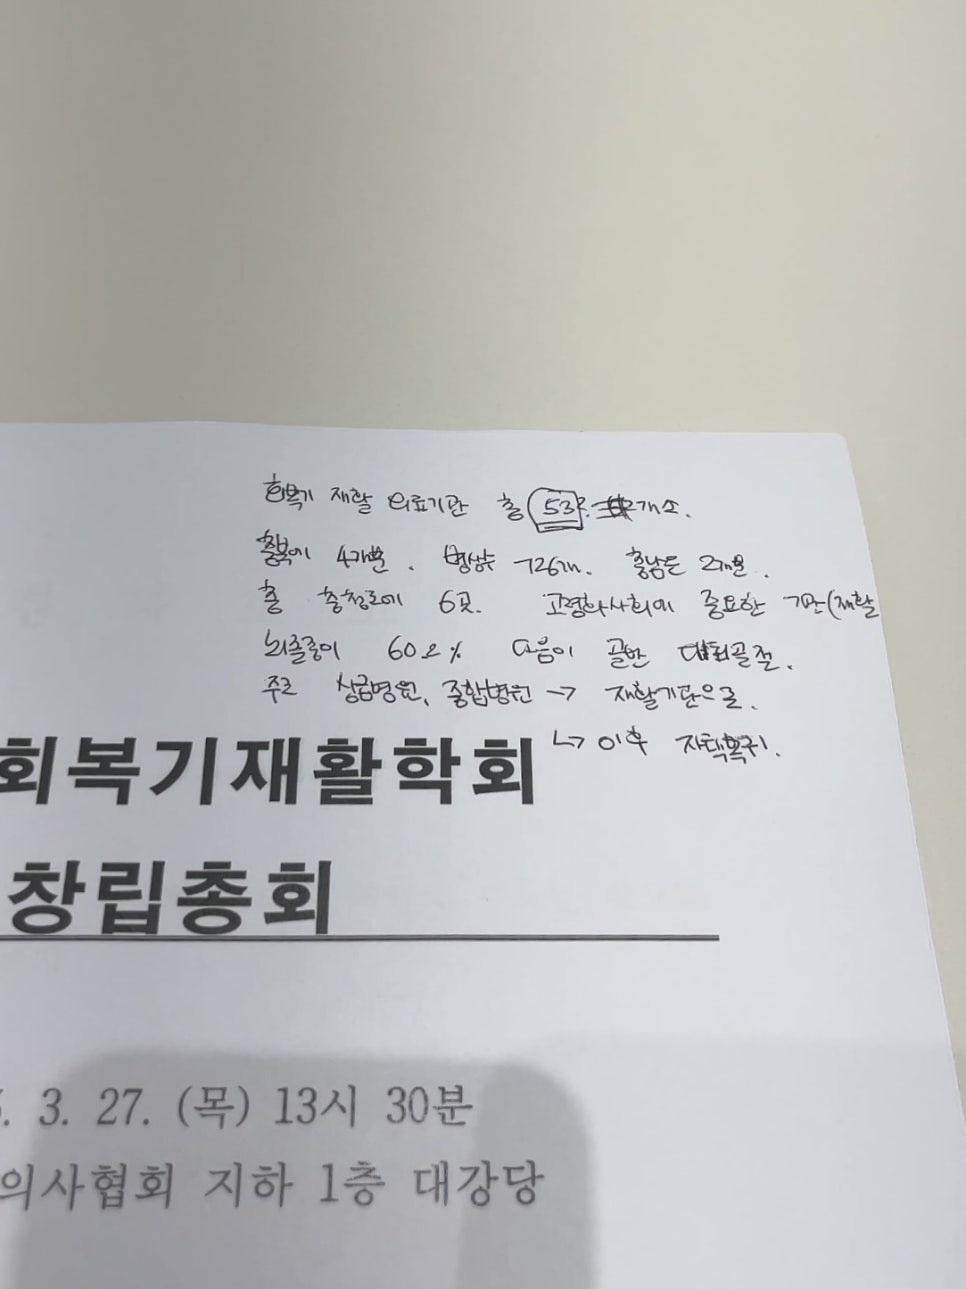 회복기 재활 의료기관 총 53 개소.
충북이 4개뿐. 병상수 726개. 충남은 2개뿐.
총 충청도에 6곳. 고령화사회에 중요한 기관(재활
뇌졸중이 60으% 다음이 골반 대퇴골절.
주로 상급병원, 종합병원 → 재활기관으로.
↳ 이후 자택복귀.
회복기재활학회
창립총회
. 3. 27. (목) 13시 30분
의사협회 지하 1층 대강당